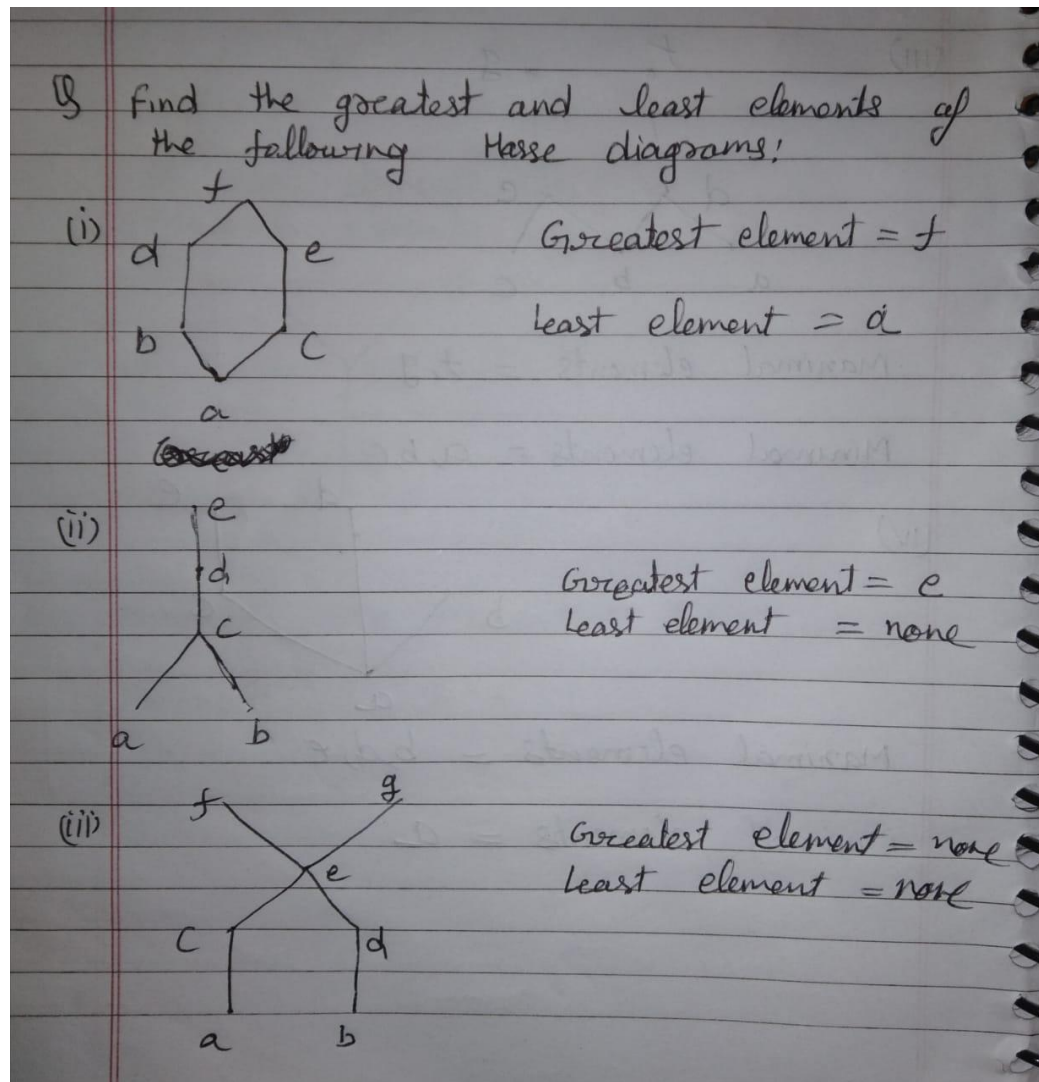 Q Find the greatest and least elements of
the following Hasse diagrams:
(i)
f
d e
b c
a
Greatest element = f
Least element = a
(ii)
e
d
c
a b
Greatest element = e
Least element = none
(iii)
f g
e
c d
a b
Greatest element = none
Least element = none